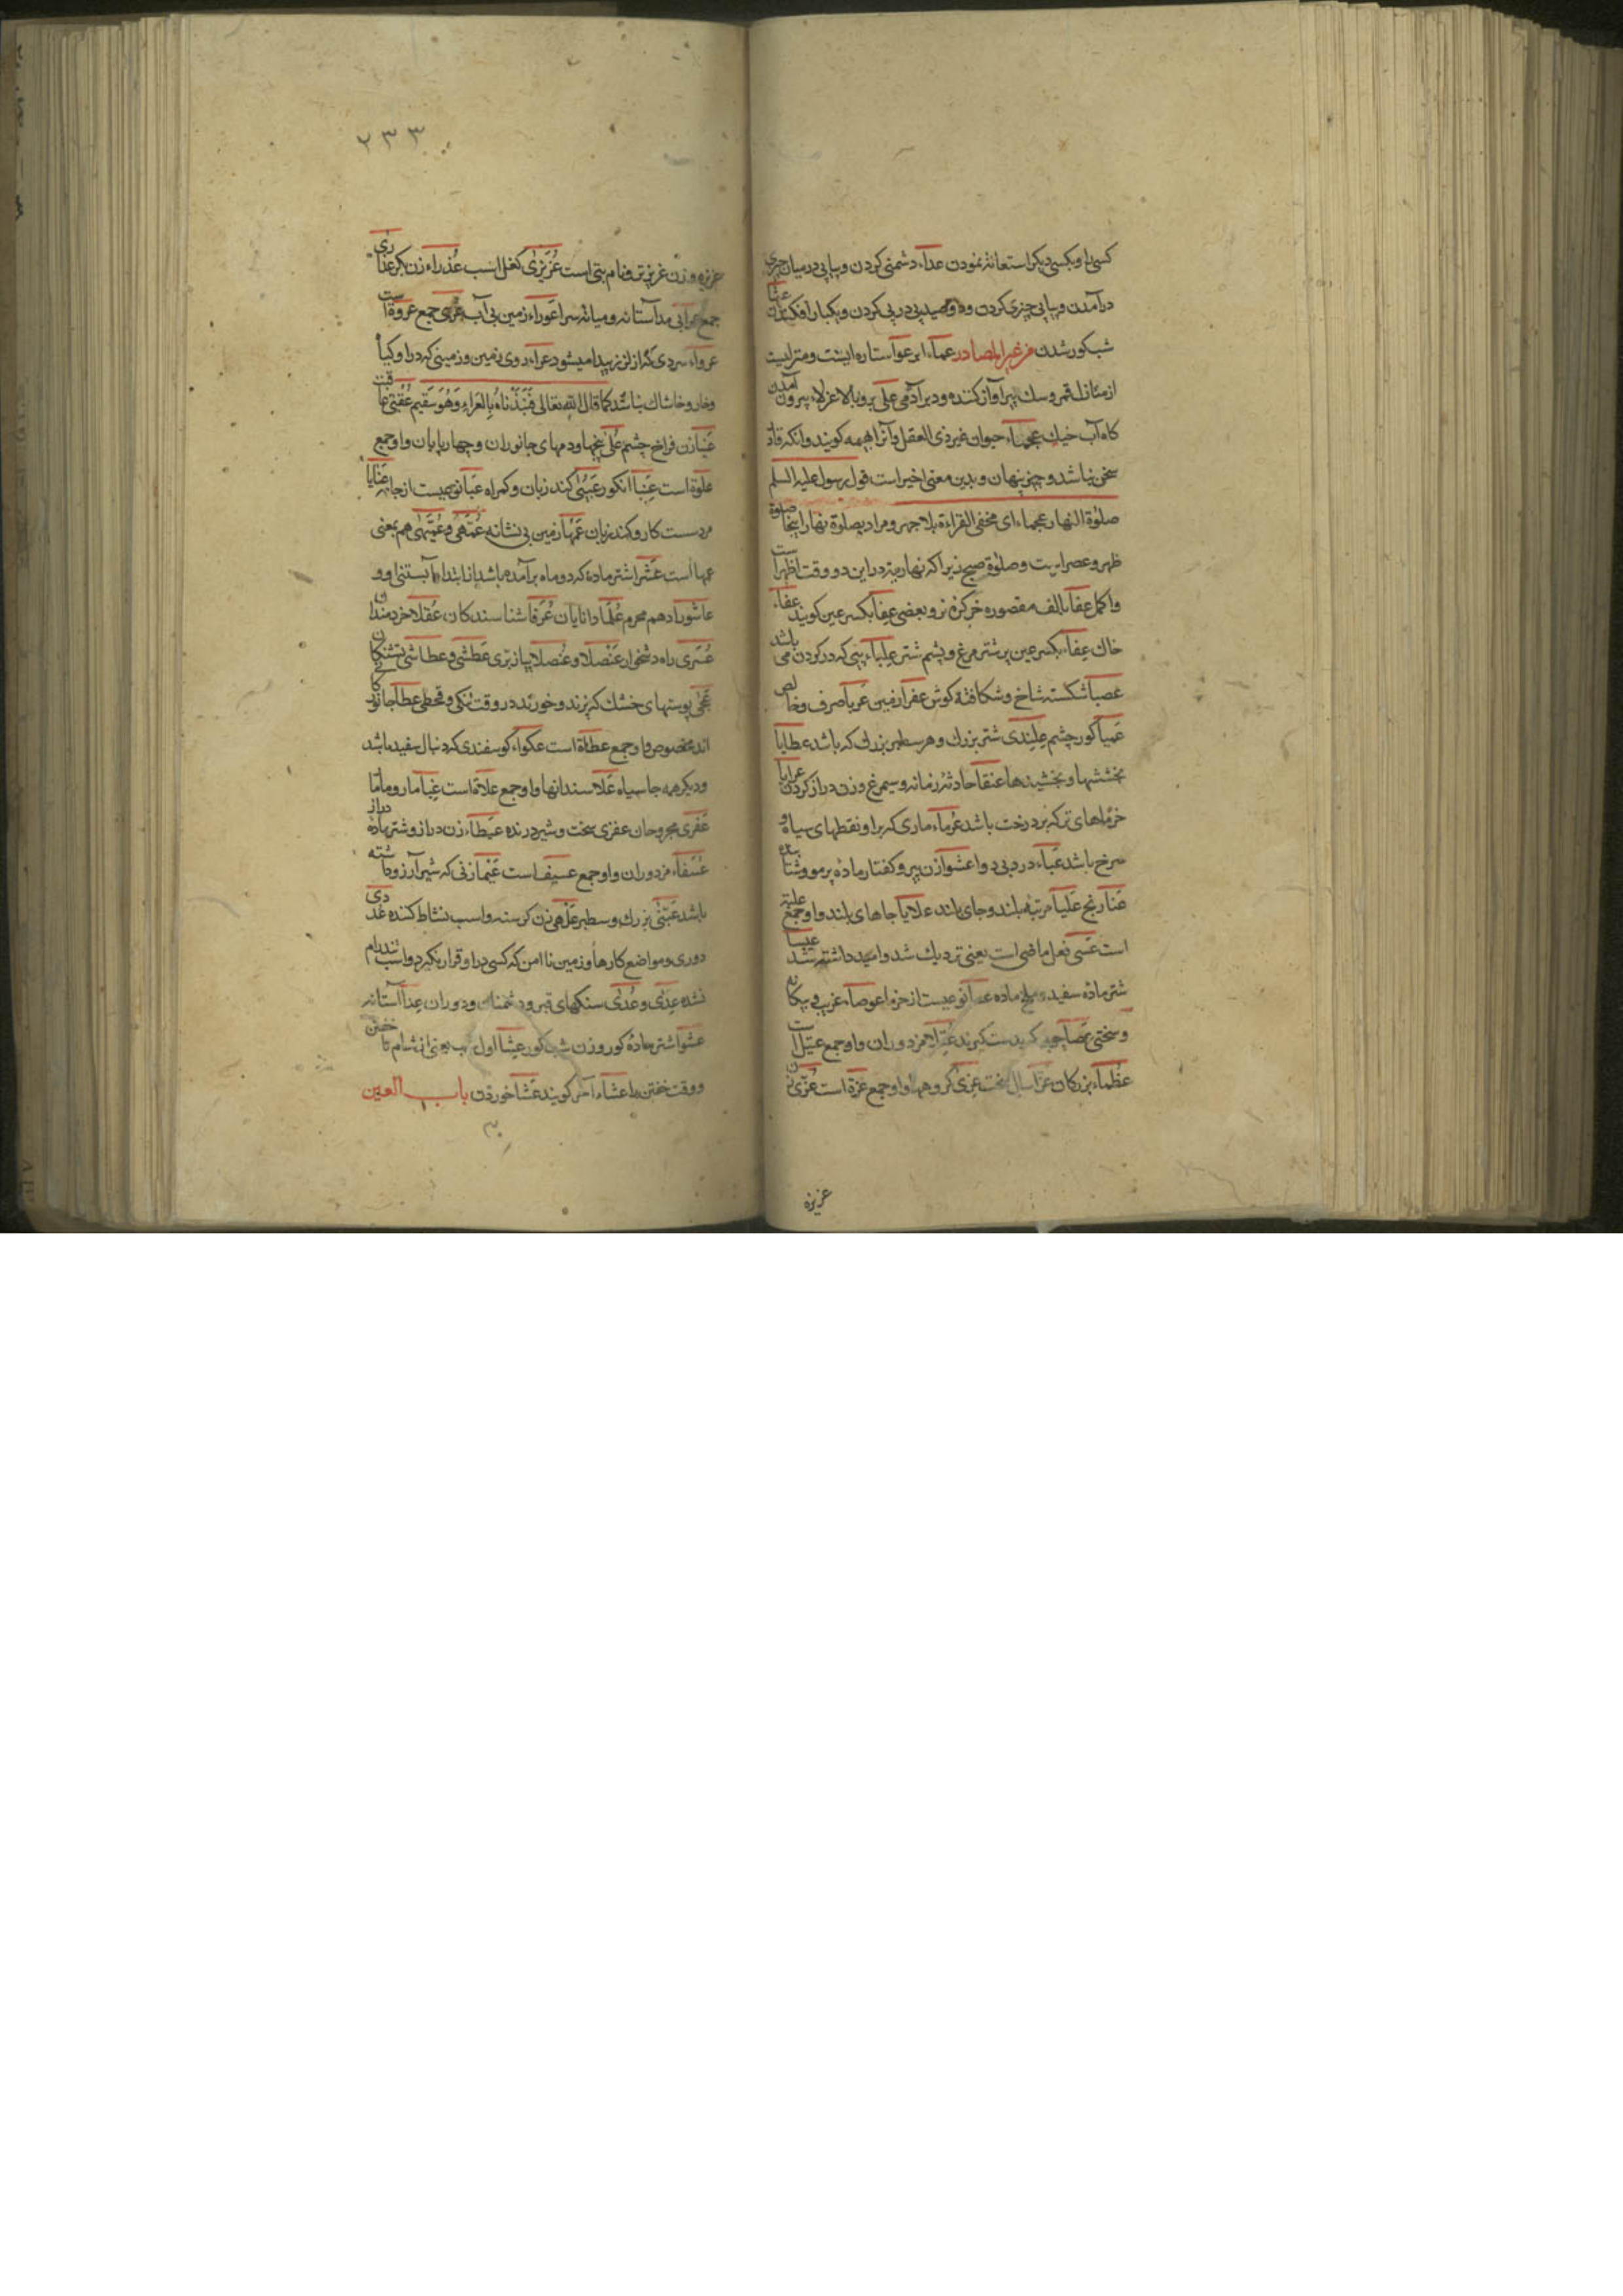 کسی را و بکسی دیکر استعانة نمودن عداء دشمنی کردن و پیاپی در میان چیزی
درآمدن و پیاپی چیزی کردن و دو صید پی در پی کردن و بیکبار افکندن عشا
شب کور شدن من غیر المصادر عماء ابر عوا ستاره ایست و منزلیست
از منازل قمر و سک پیر آواز کننده و دبر آدمی علی بر و بالا عزلاء بیرون آمدن
کاه آب خیک عجماء حیوان غیر ذی العقل و آنرا بهیمه کویند و آنکه قادر
سخن نباشد و چیز پنهان و بدین معنی اخیر است قول رسول علیه السلم
صلوة النهار عجماء ای مخفی القراءة بلا جهر و مراد بصلوة نهار اینجا صلوة
ظهر و عصر است و صلوة صبح زیرا که نهاریة در این دو وقت اظهر است
واکمل عفا بالف مقصوره خر کره نر و بعضی عفا بکسر عین کویند عفاء
خاک عفاء بکسر عین پر شتر مرغ و پشم شتر علباء پیی که در کردن می باشد
عضبا شکسته شاخ و شکافته کوش عفرا زمین عربا صرف و خالص
عمیا کور چشم علندی شتر بزرک و هر سطبر بزرک که باشد عطایا
بخششها و بخشیدها عنقا حادثه زمانه و سیمرغ و زن دراز کردن عرایا
خرماهای تر که بر درخت باشد عرماء ماری که برا و نقطهای سیاه و
سرخ باشد عیاء درد بی دوا عشوا زن پیر و کفتار ماده پر مو و شتابنده
عنا رنج علیا مرتبه بلند و جای بلند علایا جاهای بلند و او جمع علیة
است عسی فعل ماضی است یعنی نزدیک شد و امید داشته شد عیسا
شتر ماده سفید و ملخ ماده نوعیست از خرما عوصاء غریب بیکانه
و سختی عصا چوب که بدست کیرند مزدوران و او جمع است
عظماء بزرکان عزا سال سخت عزی کروهها و او جمع عزة است عزی زن
عزیزه
۲۳۳
عزیزه و زن عزیزتر و نام بتی است عزیزی کفل اسب عذراء زن بکر عذاری
جمع عرا بی مد آستانه و میانه سرا عوراء زمین بی آب عری جمع عروة است
عرواء سردی که از لرز پیدا میشود عراء روی زمین و زمینی که در او کیاه
و خار و خاشاک نباشد کما قال الله تعالی فنبذناه بالعراء و هو سقیم عقبی عاقبت
عینا زن فراخ چشم علی پیها و دمهای جانوران و چهارپایان و او جمع
علوة است عنبا انکور عییی کند زبان و کمراه عبا نوعیست از جامه عنایا
مرد سست کار و کند زبان عمها زمین بی نشانه عمهی و عمیهی هم بمعنی
عمها است عشرا شتر ماده که دو ماه برآمده باشد از ابتداء آبستنی او و
عاشورا دهم محرم علما دانایان عرفا شناسندکان عقلا خردمندان
عسری راه دشخوار عنصلا و عنصلا پیاز بری عطشی و عطاشی تشنکان
عجی پوستهای خشک که پزند و خورند در وقت تنکی و قحطی عطا جانورکی
اند مخصوص و او جمع عطاة است عکواء کوسفندی که دنبال سفید باشد
و دیکر همه جا سیاه علا سندانها و او جمع علاة است
عقری مجروحان عفری سخت و شیر درنده عیطاء زن دراز و شتر ماده دراز
عسفاء مزدوران و او جمع عسیف است عیما زنی که شیر آرزو داشته
باشد عبنی بزرک و سطبر عزهی زن کرسنه و اسب نشاط کننده عدی
دوری و مواضع کارها و زمین نا امن که کسی در او قرار نکیرد و اسب تند رام
نشده عدی و عدی سنکهای قبر و دشمنان و دوران عذا آستانه
عشوا شتر ماده کور و زن شب کور عشا اول شب یعنی از شام تا خفتن
و وقت خفتن را عشاء آخر کویند عشا خوردن باب العین